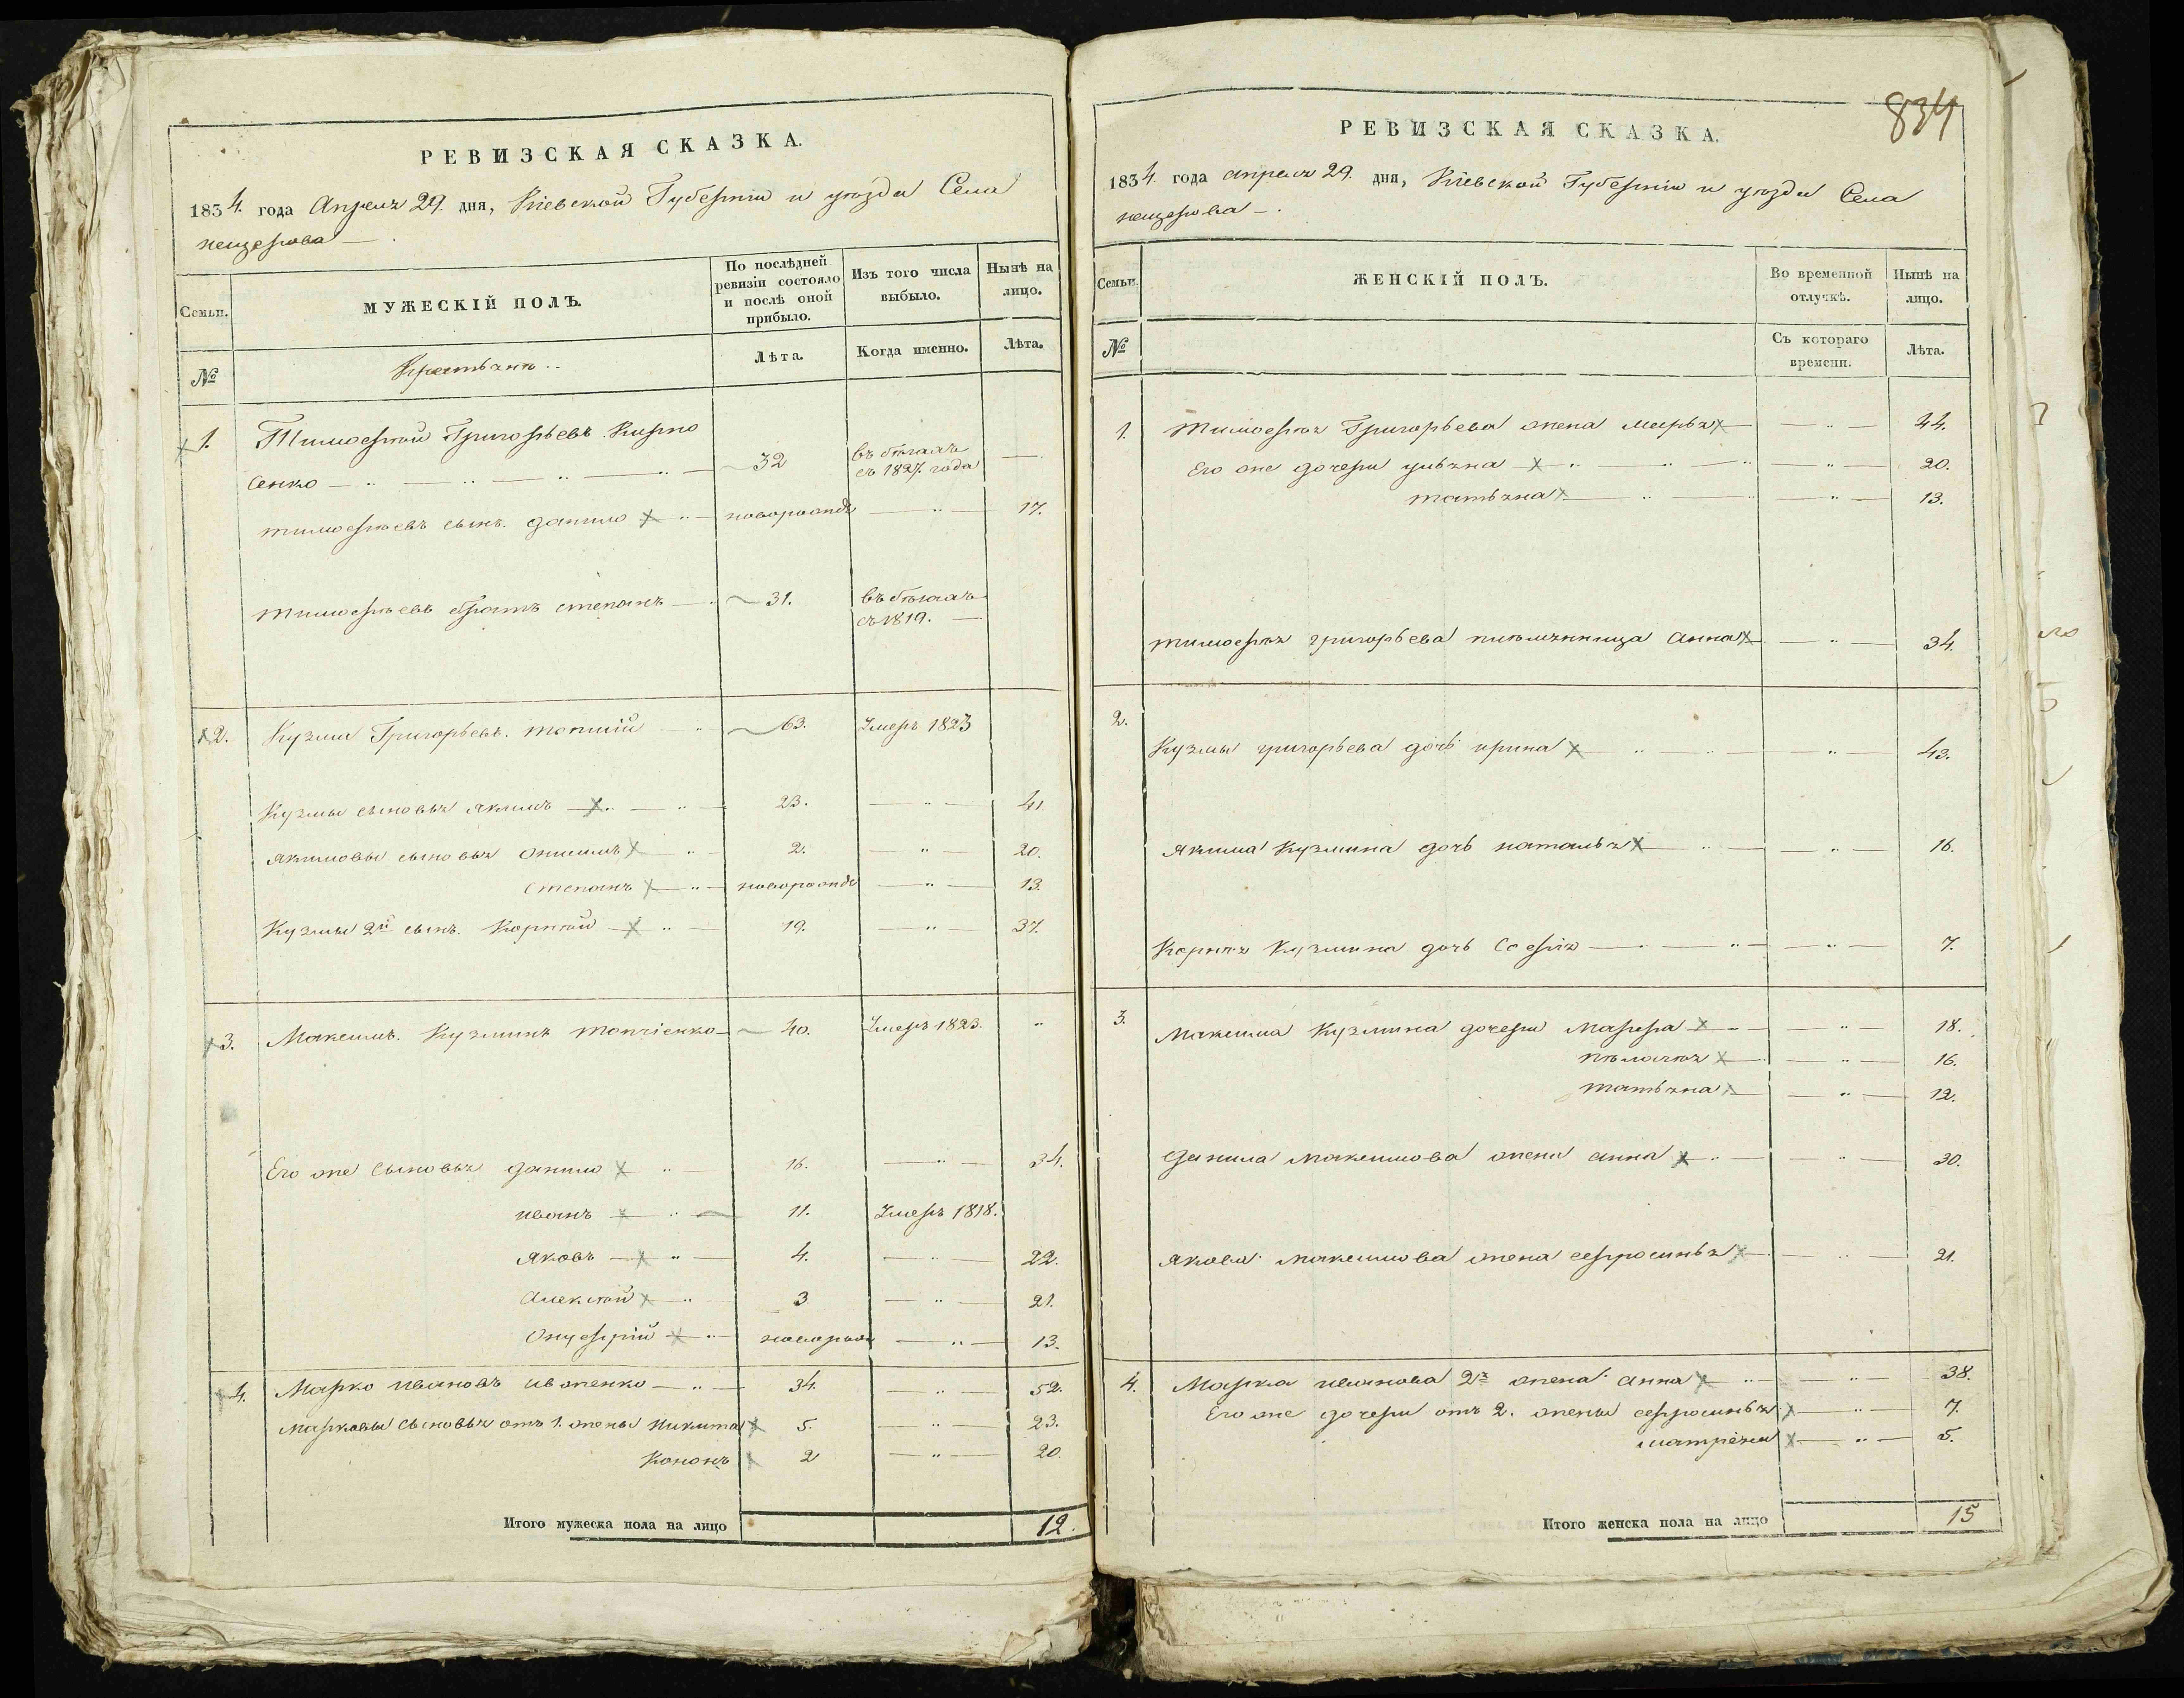 РЕВИЗСКАЯ СКАЗКА.
1834. года Апреля 29. дня, Кіевской Губерніи и уезда Села
кощеева
Семьи.
МУЖЕСКІЙ ПОЛЪ.
По послѣдней ревизіи состояло и послѣ оной прибыло.
Изъ того числа выбыло.
Нынѣ на лицо.
№
Крестьянѣ
Лѣта.
Когда именно.
Лѣта.
1. Тимофей Григорьевъ Кирно
сенко 32 въ бѣгахъ съ 1827. года
тимофѣевъ сынъ данило новорожд 17.
тимофѣевъ братъ степанъ 31. въ бѣгахъ съ 1819.
2. Кузма Григорьевъ топчій 63. Умеръ 1823
Кузмы сыновья якимъ 23. 41
якимовы сыновья онисимъ 2. 20.
степанъ новорожд 13.
Кузмы 2й сынъ Корнѣй 19. 37.
3. Максимъ Кузминъ топчіенко 40. Умеръ 1823.
Его же сыновья данило 16. 34.
иванъ 11. Умеръ 1818.
яковъ 4. 22.
Алексѣй 3 21.
Онуфрій новорож 13.
4. Марко ивановъ ивженко 34. 52.
Марковы сыновья отъ 1. жены Никита 5. 23.
Кононъ 2 20.
Итого мужеска пола на лицо 12.
834
РЕВИЗСКАЯ СКАЗКА.
1834. года апреля 29. дня, Кіевской Губерніи и уезда Села
Семьи.
ЖЕНСКІЙ ПОЛЪ.
Во временной отлучкѣ.
Нынѣ на лицо.
№
Съ котораго времени.
Лѣта.
1. Тимофѣя Григорьева жена марья 44.
Его же дочери ульяна 20.
татьяна 13.
тимофѣя григорьева племянница Анна 34.
2.
Кузмы григорьева дочь ирина 43.
якима Кузмина дочь наталья 16.
Корнѣя Кузмина дочь Софія 7.
3. Максима Кузмина дочери Марфа 18.
пелагѣя 16.
татьяна 12.
данила максимова жена анна 30.
якова максимова жена ефросинья 21.
4. Марка иванова 2я жена анна 38.
Его же дочери отъ 2. жены ефросинья 7.
матрёна 5.
Итого женска пола на лицо 15